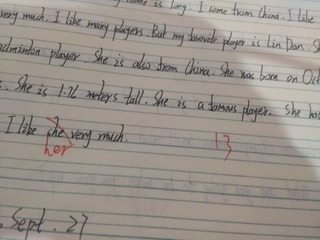 name is Tang. I come from China. I like
very much. I like many players But my favourite player is Lin Dan. S
adminton player. She is also from China. She was born on Oct
. She is 1.76 meters tall. She is a famous player. She has
I like she very much.
her
13
Sept. 27